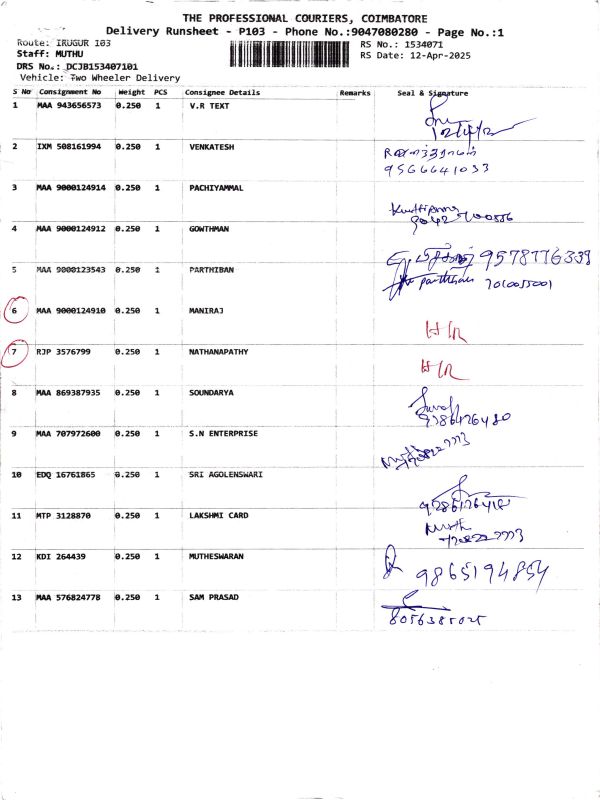 THE PROFESSIONAL COURIERS, COIMBATORE
Delivery Runsheet - P103 - Phone No.:9047080280 - Page No.:1
Route: IRUGUR 103
RS No.: 1534071
Staff: MUTHU
RS Date: 12-Apr-2025
DRS No.: DCJB153407101
Vehicle: Two Wheeler Delivery
S No Consignment No Weight PCS Consignee Details Remarks Seal & Signature
1 MAA 943656573 0.250 1 V.R TEXT
2 IXM 508161994 0.250 1 VENKATESH
9566641033
3 MAA 9000124914 0.250 1 PACHIYAMMAL
4 MAA 9000124912 0.250 1 GOWTHMAN
9578776339
5 MAA 9000123543 0.250 1 PARTHIBAN
7010055001
6 MAA 9000124910 0.250 1 MANIRAJ
H/R
7 RJP 3576799 0.250 1 NATHANAPATHY
H/R
8 MAA 869387935 0.250 1 SOUNDARYA
9 MAA 707972600 0.250 1 S.N ENTERPRISE
10 EDQ 16761865 0.250 1 SRI AGOLENSWARI
11 MTP 3128870 0.250 1 LAKSHMI CARD
12 KDI 264439 0.250 1 MUTHESWARAN
9865194854
13 MAA 576824778 0.250 1 SAM PRASAD
8056385025